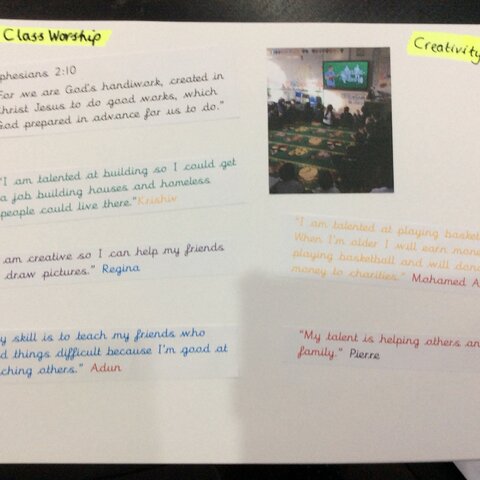 Class Worship
Creativity
phesians 2:10
For we are God's handiwork, created in
Christ Jesus to do good works, which
God prepared in advance for us to do."
"I am talented at building so I could get
a job building houses and homeless
people could live there." Krishiv
am creative so I can help my friends
draw pictures." Regina
y skill is to teach my friends who
d things difficult because I'm good at
ching others." Adun
"I am talented at playing basket
When I'm older I will earn mone
playing basketball and will don
money to charities." Mohamed A
"My talent is helping others an
family." Pierre